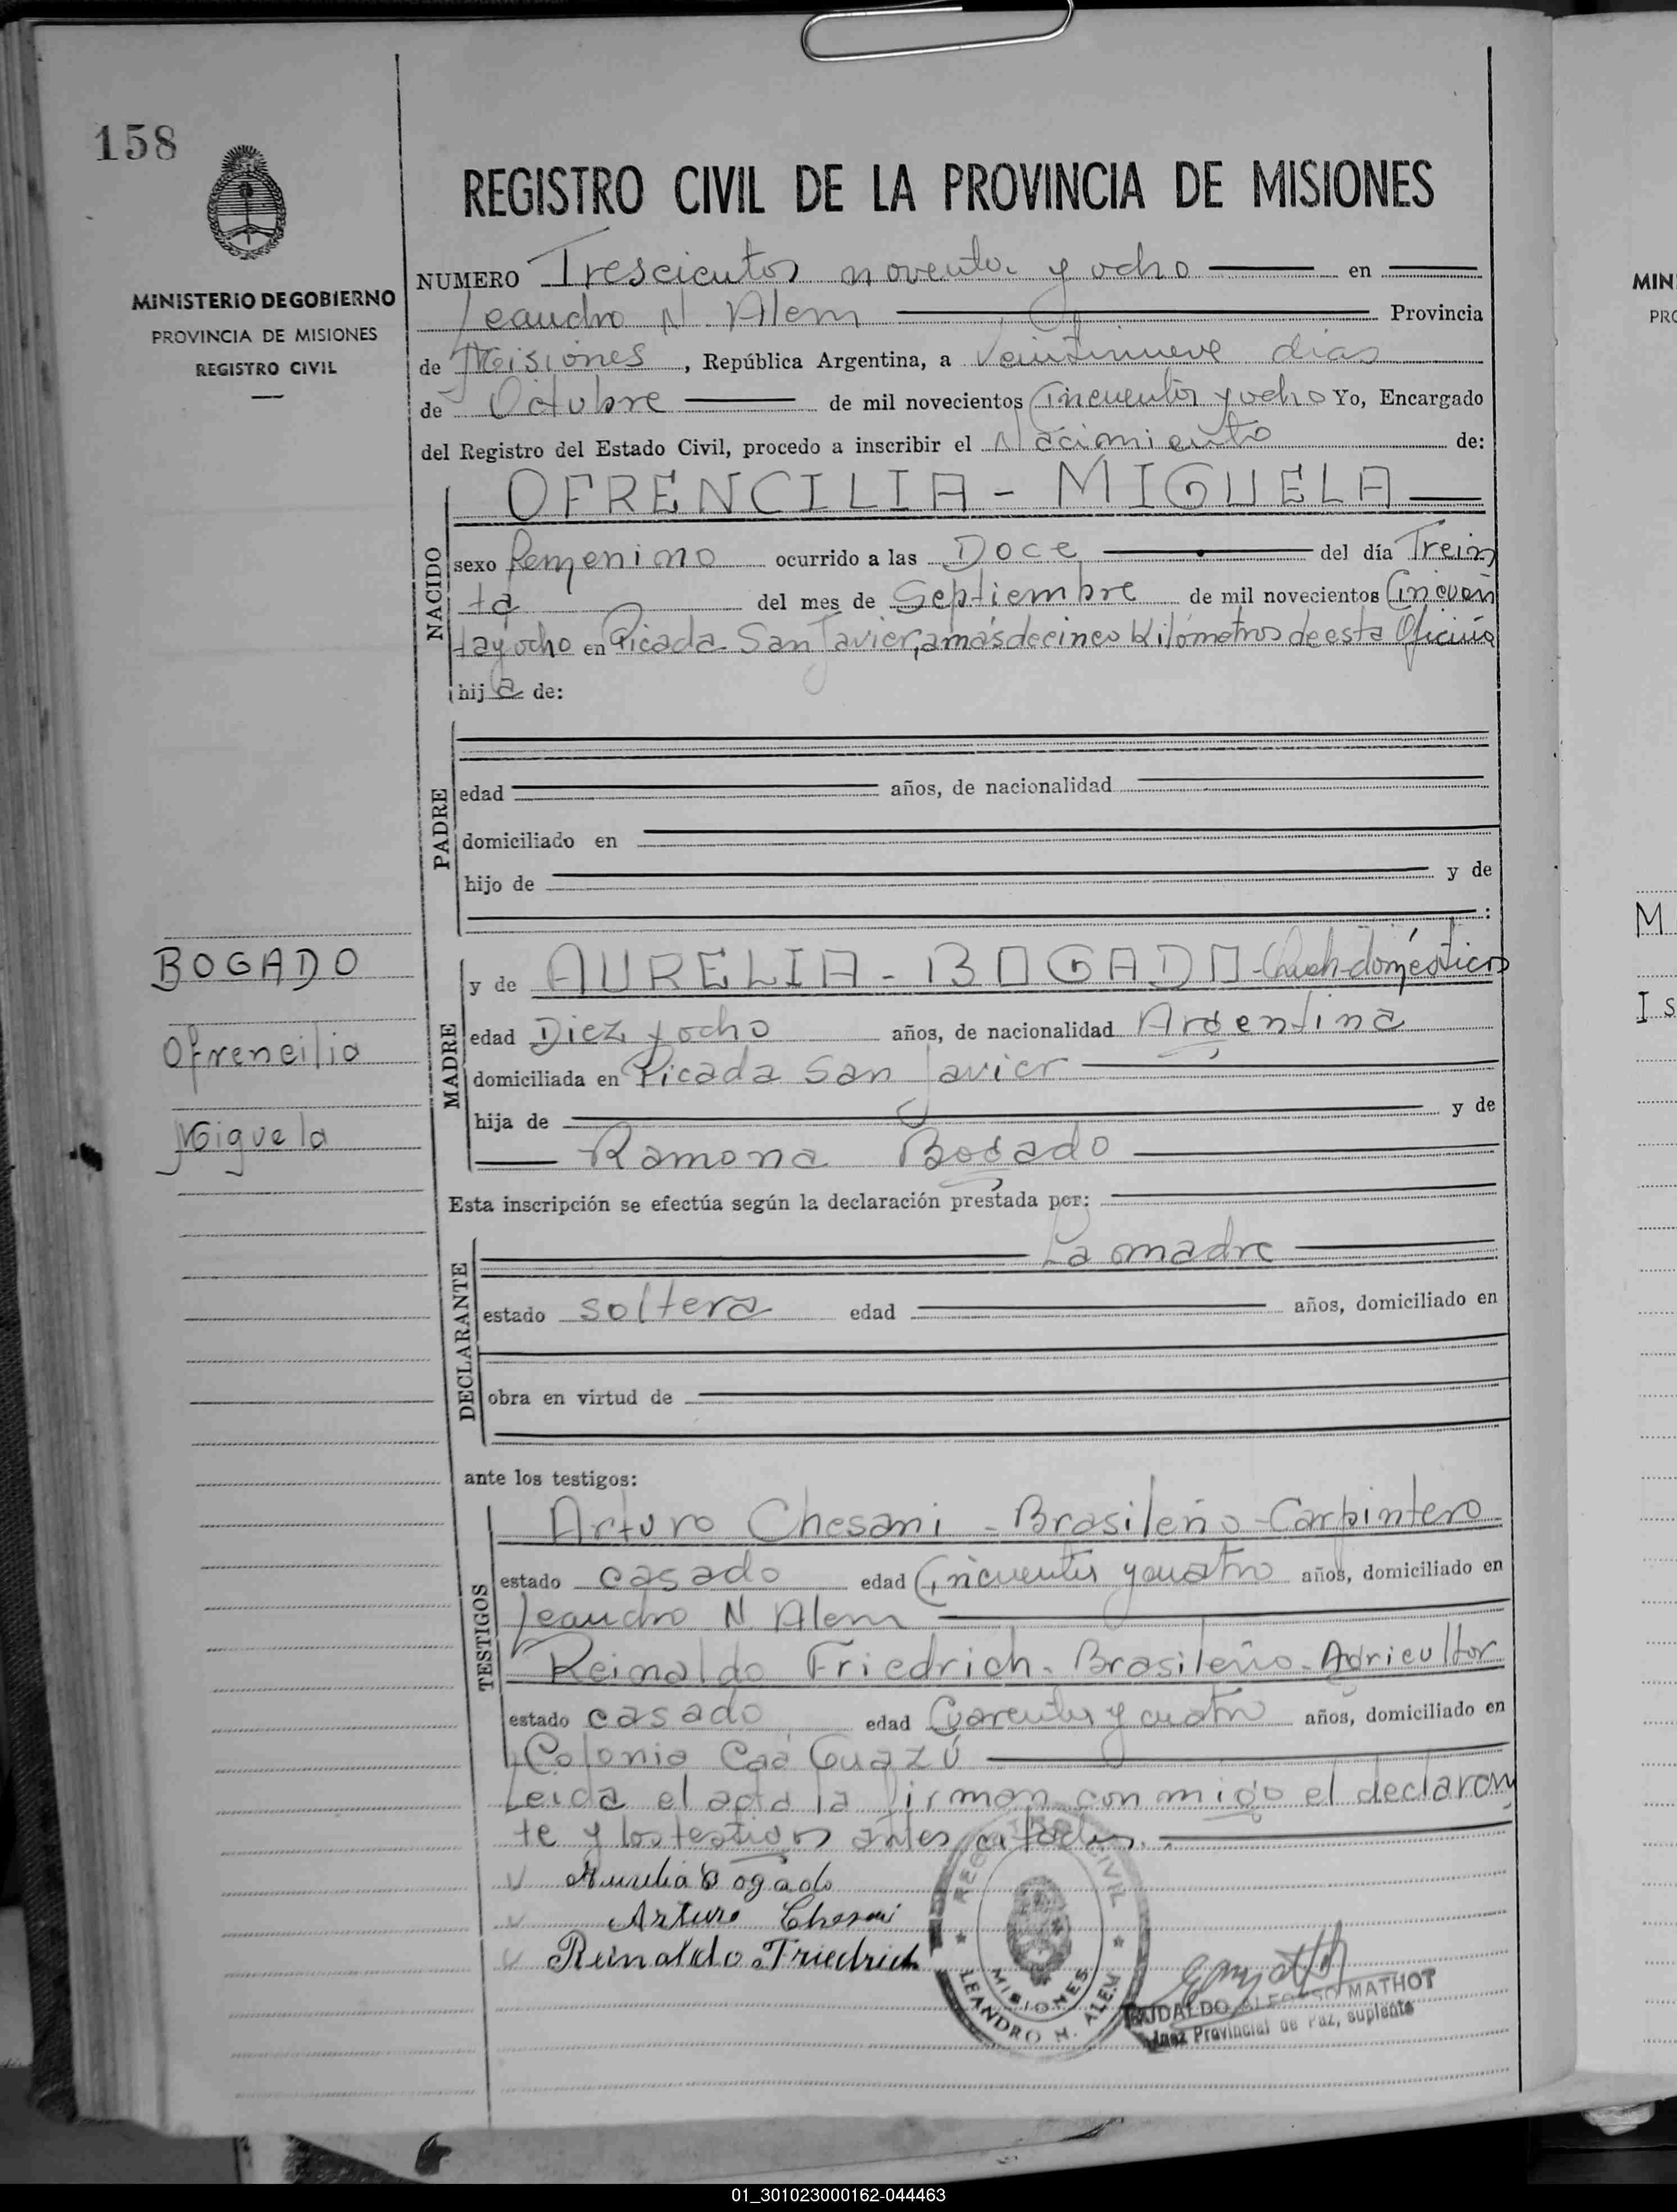 158
MINISTERIO DE GOBIERNO
PROVINCIA DE MISIONES
REGISTRO CIVIL
REGISTRO CIVIL DE LA PROVINCIA DE MISIONES
NUMERO Trescientos noventa y ocho en
Leandro N. Alem Provincia
de Misiones, República Argentina, a veintinueve dias
de Octubre de mil novecientos Cincuenta y ocho Yo, Encargado
del Registro del Estado Civil, procedo a inscribir el Nacimiento de:
NACIDO
OFRENCILIA - MIGUELA
sexo Femenino ocurrido a las Doce del día Trein
ta del mes de Septiembre de mil novecientos Cincuen
ta y ocho en Picada San Javier, a más de cinco Kilómetros de esta Oficina
hija de:
PADRE
edad años, de nacionalidad
domiciliado en
hijo de y de
:
BOGADO
Ofrencilia
Miguela
MADRE
y de AURELIA - BOGADO - domésticos
edad Diez y ocho años, de nacionalidad Argentina
domiciliada en Picada San Javier
hija de y de
Ramona Bogado
Esta inscripción se efectúa según la declaración prestada por:
DECLARANTE
La madre
estado soltera edad años, domiciliado en
obra en virtud de
ante los testigos:
TESTIGOS
Arturo Chesani - Brasileño - Carpintero
estado casado edad Cincuenta y cuatro años, domiciliado en
Leandro N. Alem
Reinaldo Friedrich - Brasileño - Agricultor
estado casado edad Cuarenta y cuatro años, domiciliado en
Colonia Caá Guazú
Leida el acta la firman conmigo el declaran
te y los testigos antes citados.
Aurelia Bogado
Arturo Chesani
Reinaldo Friedrich
REGISTRO CIVIL
MISIONES
LEANDRO N. ALEM
ALFONSO MATHOT
Juez Provincial de Paz, suplente
MIN
PRO
M
I S
01_301023000162-044463